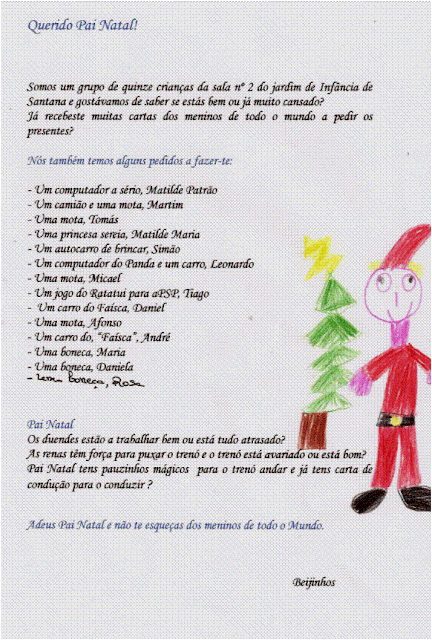 Querido Pai Natal!
Somos um grupo de quinze crianças da sala nº 2 do jardim de Infância de
Santana e gostávamos de saber se estás bem ou já muito cansado?
Já recebeste muitas cartas dos meninos de todo o mundo a pedir os
presentes?
Nós também temos alguns pedidos a fazer-te:
- Um computador a sério, Matilde Patrão
- Um camião e uma mota, Martim
- Uma mota, Tomás
- Uma princesa sereia, Matilde Maria
- Um autocarro de brincar, Simão
- Um computador do Panda e um carro, Leonardo
- Uma mota, Micael
- Um jogo do Ratatui para aPSP, Tiago
- Um carro do Faísca, Daniel
- Uma mota, Afonso
- Um carro do, "Faísca", André
- Uma boneca, Maria
- Uma boneca, Daniela
- Uma boneca, Rosa
Pai Natal
Os duendes estão a trabalhar bem ou está tudo atrasado?
As renas têm força para puxar o trenó e o trenó está avariado ou está bom?
Pai Natal tens pauzinhos mágicos para o trenó andar e já tens carta de
condução para o conduzir ?
Adeus Pai Natal e não te esqueças dos meninos de todo o Mundo.
Beijinhos